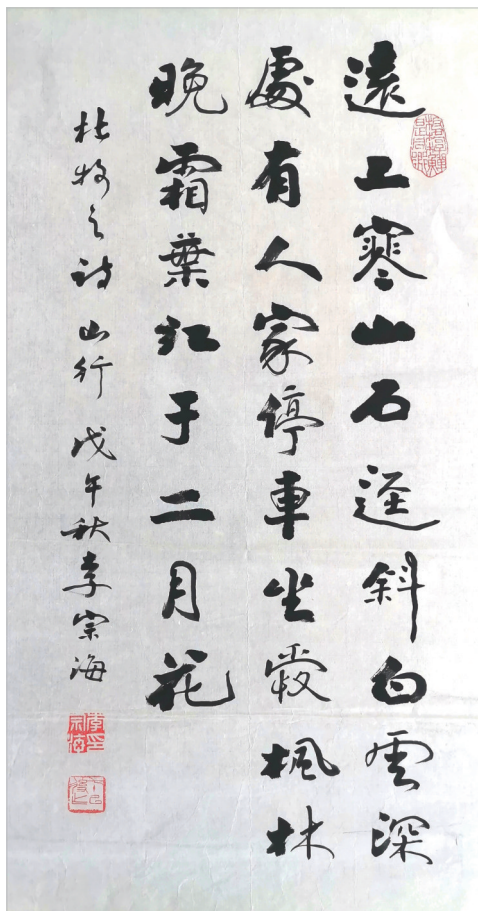 遠上寒山石逕斜白雲深
處有人家停車坐愛楓林
晚霜葉红于二月花
杜牧之詩山行戊午秋李宗海